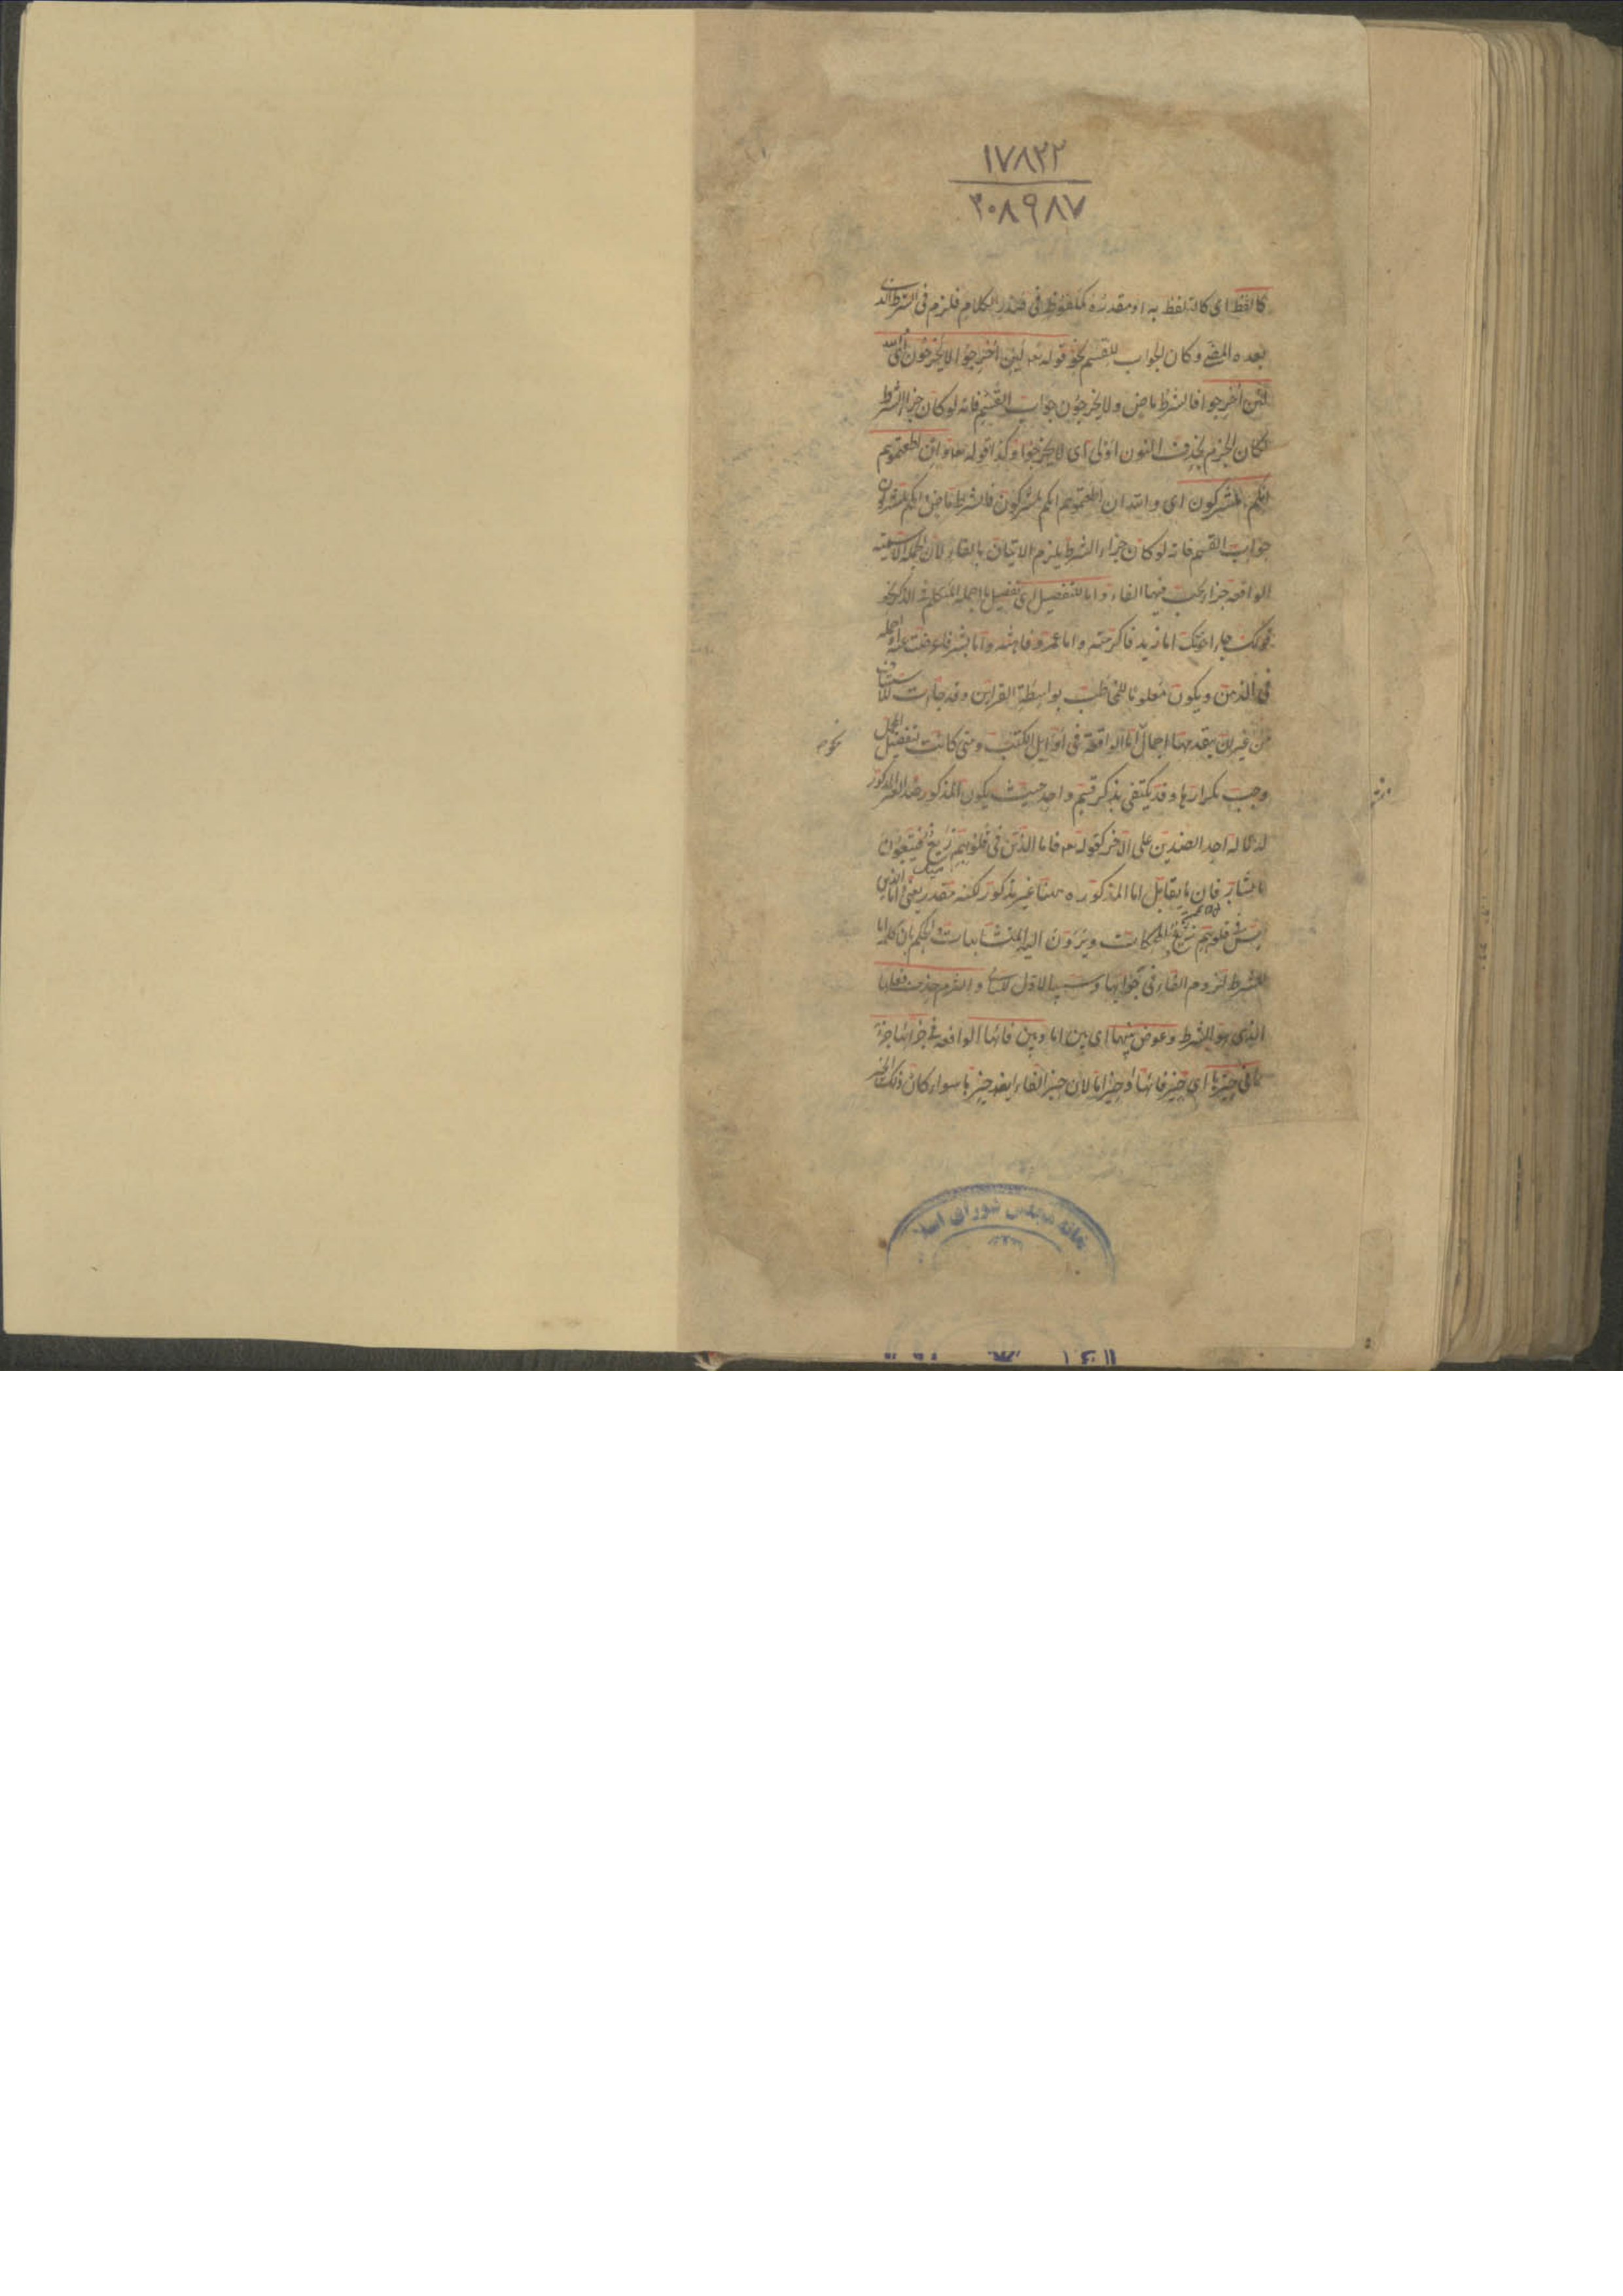 ۱۷۸۲۲
۲۰۸۹۸۷
كاللفظ اى كالتلفظ به او مقدره كملفوظ فى صدر الكلام فلزم فى الشرط الذى
بعده المضى وكان الجواب للقسم نحو قوله تعه لئن اخرجوا لا يخرجون اى والله
لئن اخرجوا فالشرط ماض ولا يخرجون جواب القسم فانه لو كان جزاء الشرط
لكان الجزم بحذف النون اولى اى لا يخرجوا وكذا قوله تعه وان اطعتموهم
انكم لمشركون اى والله ان اطعتموهم انكم لمشركون فالشرط ماض وانكم لمشركون
جواب القسم فانه لو كان جزاء الشرط يلزم الاتيان بالفاء لان الجملة الاسمية
الواقعة جزاء يجب فيها الفاء واما للتفصيل اى تفصيل ما اجمله المتكلم فى الذكر نحو
قولك جاء اخوتك اما زيد فاكرمته واما عمرو فاهنته واما بشر فاعرضت عنه او اجمله
فى الذهن ويكون معلوما للمخاطب بواسطة القراين وقد جاءت للاستيناف
من غير ان يتقدمها اجمال اما الواقعة فى اوايل الكتب ومتى كانت لتفصيل المجمل
وجب تكرارها وقد يكتفى بذكر قسم واحد حيث يكون المذكور ضد الغير المذكور
لدلالة احد الضدين على الاخر كقوله تعه فاما الذين فى قلوبهم زيغ فيتبعون
ما تشابه فان ما يقابل اما المذكورة ههنا غير مذكور لكنه مقدر يعنى واما الذين
ليس فى قلوبهم زيغ المحكمات ويردون اليها المتشابهات والحكم بان كلمة اما
للشرط لزوم الفاء فى جوابها وسببية الاول للثانى والتزم حذف فعلها
الذى هو الشرط وعوض بينهما اى بين اما وبين فائها الواقعة فى جزائها جزء
مما فى حيزها اى حيز فائها او حيز اما لان حيز الفاء ايضا حيزها سواء كان ذلك الجزء